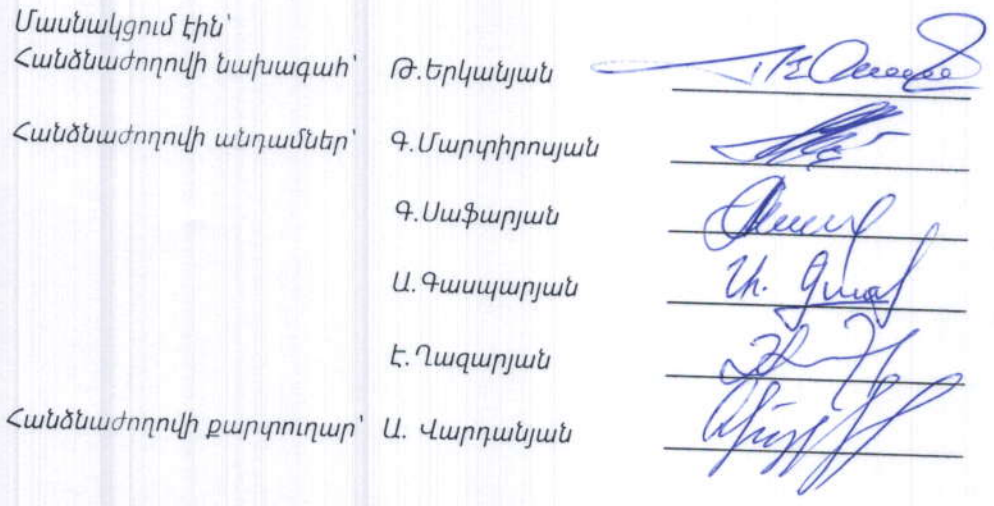 Մասնակցում էին՝
Հանձնաժողովի նախագահ՝ Թ.Երկանյան
Հանձնաժողովի անդամներ՝ Գ.Մարտիրոսյան
Գ.Սաֆարյան
Ա.Գասպարյան
Է.Ղազարյան
Հանձնաժողովի քարտուղար՝ Ա. Վարդանյան